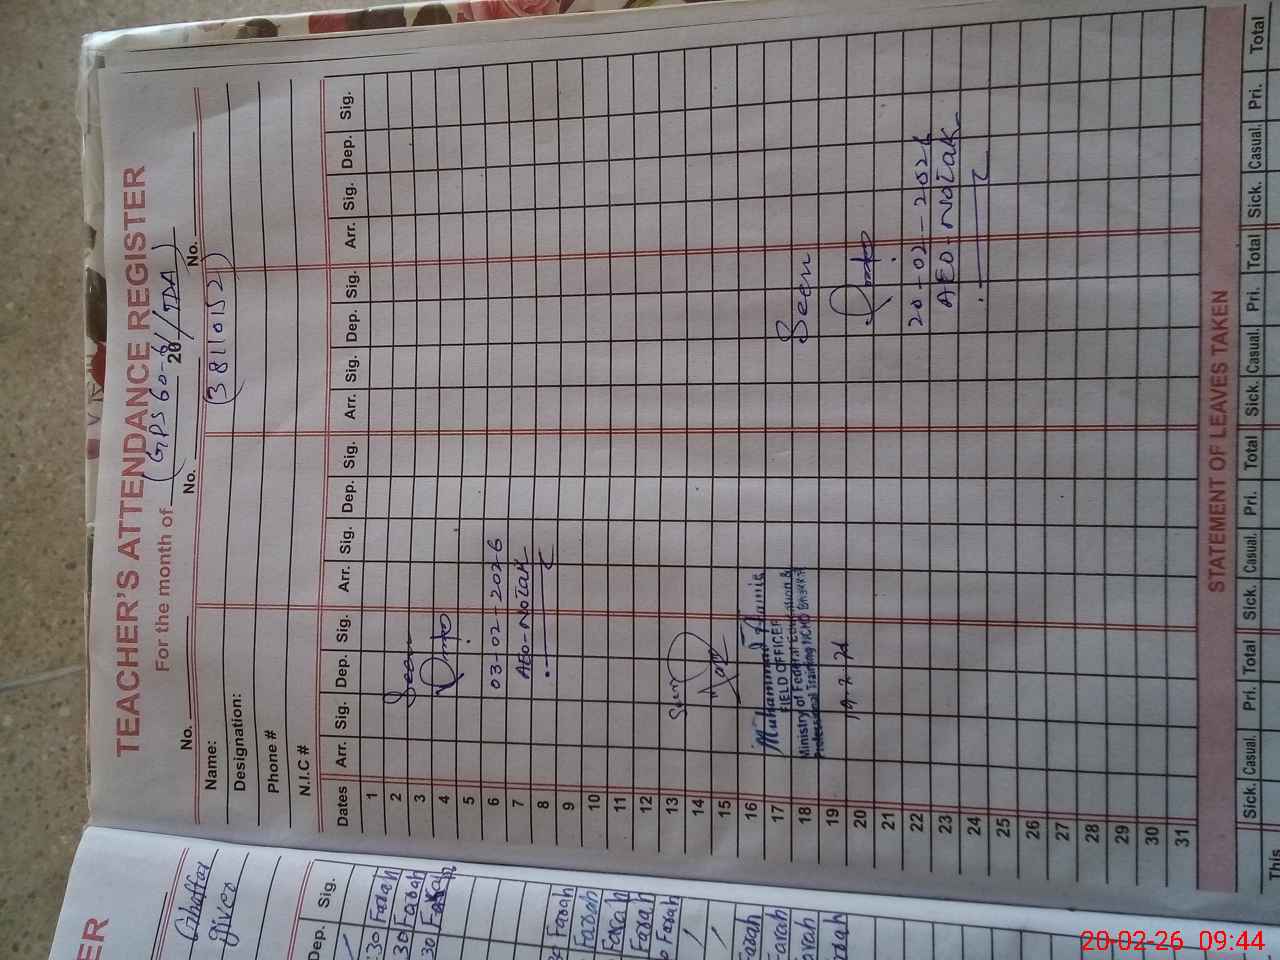 TEACHER'S ATTENDANCE REGISTER
For the month of (GPS 60-61/TDA) 20
No. No. No. No.
(38110152)
Name:
Designation:
Phone #
N.I.C #
Dates Arr. Sig. Dep. Sig. Arr. Sig. Dep. Sig. Arr. Sig. Dep. Sig. Arr. Sig. Dep. Sig.
1
2
Seen
3
4
5
6
03-02-2026
7
AEO-Notak
8
9
10
11
12
13
Seen
14
15
16
Muhammad
17
FIELD OFFICER
18
Ministry of Federal Education &
Professional Training NCHD
Seen
19
20
19.2.26
21
22
20-02-2026
23
AEO-Notak
24
25
26
27
28
29
30
31
STATEMENT OF LEAVES TAKEN
Sick. Casual. Pri. Total Sick. Casual. Pri. Total Sick. Casual. Pri. Total Sick. Casual. Pri. Total
This
ER
Ghaffar
Dep. Sig.
30 Farah
30 Farah
30 Farah
Farah
Farah
Farah
Farah
Farah
Farah
Farah
Farah
Farah
20-02-26 09:44